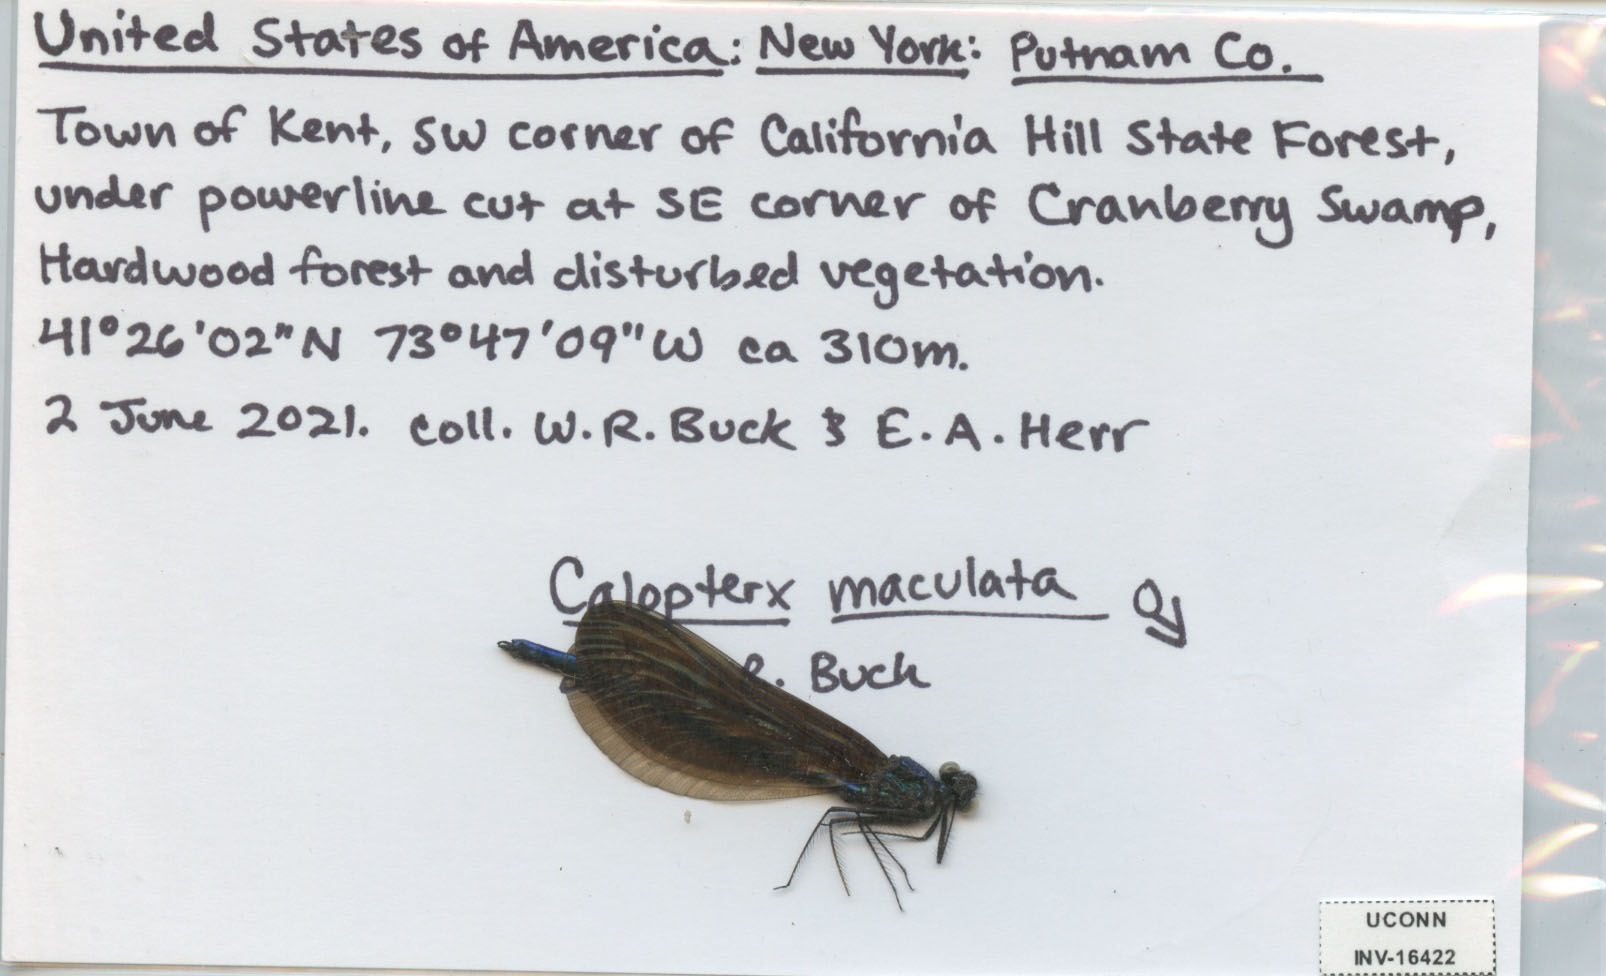 United States of America: New York: Putnam Co.
Town of Kent, SW corner of California Hill State Forest,
under powerline cut at SE corner of Cranberry Swamp,
Hardwood forest and disturbed vegetation.
41°26'02"N 73°47'09"W ca 310m.
2 June 2021. coll. W.R. Buck & E.A. Herr
Calopterx maculata ♂
R. Buck
UCONN
INV-16422